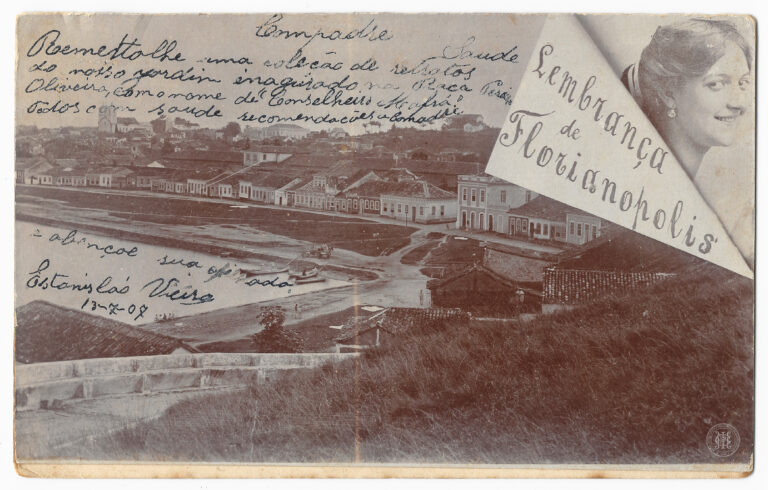 Compadre
Saude
Remettolhe uma coleção de retratos
do nosso jardim inagurado, na Praça
Oliveira, com o nome de "Conselheiro Mafra"
todos com saude recomendações a Comadre
abençoe sua afilhada.
Estanisláo Vieira
13-7-07
Lembrança
de
Florianopolis